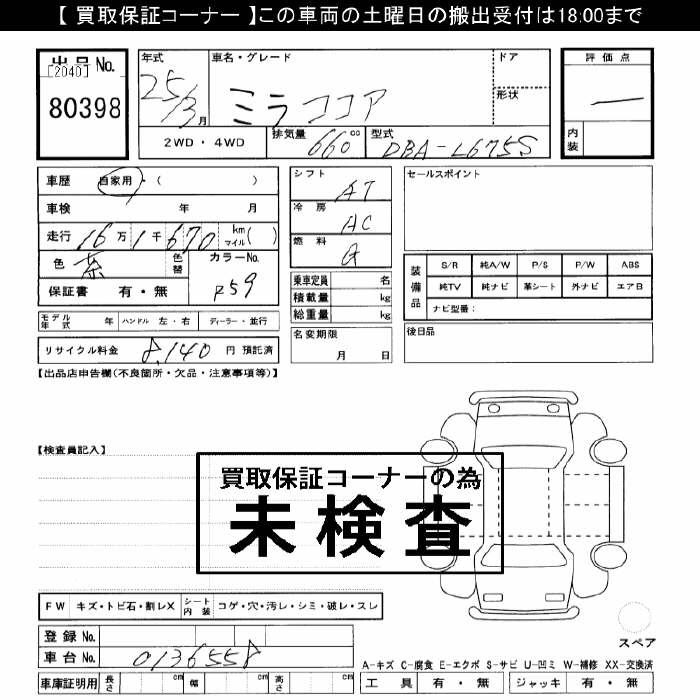 【 買取保証コーナー 】この車両の土曜日の搬出受付は18:00まで
出品 No. 年式 車名・グレード ドア 評価点
[2040]
80398 25/3 月 ミラココア 形状 ―
2WD・4WD 排気量 660 cc 型式 DBA-L675S 内装
車歴 自家用・( ) シフト AT セールスポイント
車検 年 月 冷房 AC
走行 16万1千670 km マイル( ) 燃料 G
色 茶 色替 カラーNo. P59 装備品 S/R 純A/W P/S P/W ABS
保証書 有・無 乗車定員 名 純TV 純ナビ 革シート 外ナビ エアB
積載量 kg ナビ型番:
モデル年式 年 ハンドル 左・右 ディーラー・並行 総重量 kg
リサイクル料金 8,140 円 預託済 名変期限 月 日 後日品
【出品店申告欄(不良箇所・欠品・注意事項等)】
【検査員記入】
買取保証コーナーの為
未検査
FW キズ・トビ石・割レX シート内装 コゲ・穴・汚レ・シミ・破レ・スレ
登録 No. スペア
車台 No. 0136558
A-キズ C-腐食 E-エクボ S-サビ U-凹ミ W-補修 XX-交換済
車庫証明用 長さ cm 幅 cm 高さ cm 工具 有・無 ジャッキ 有・無